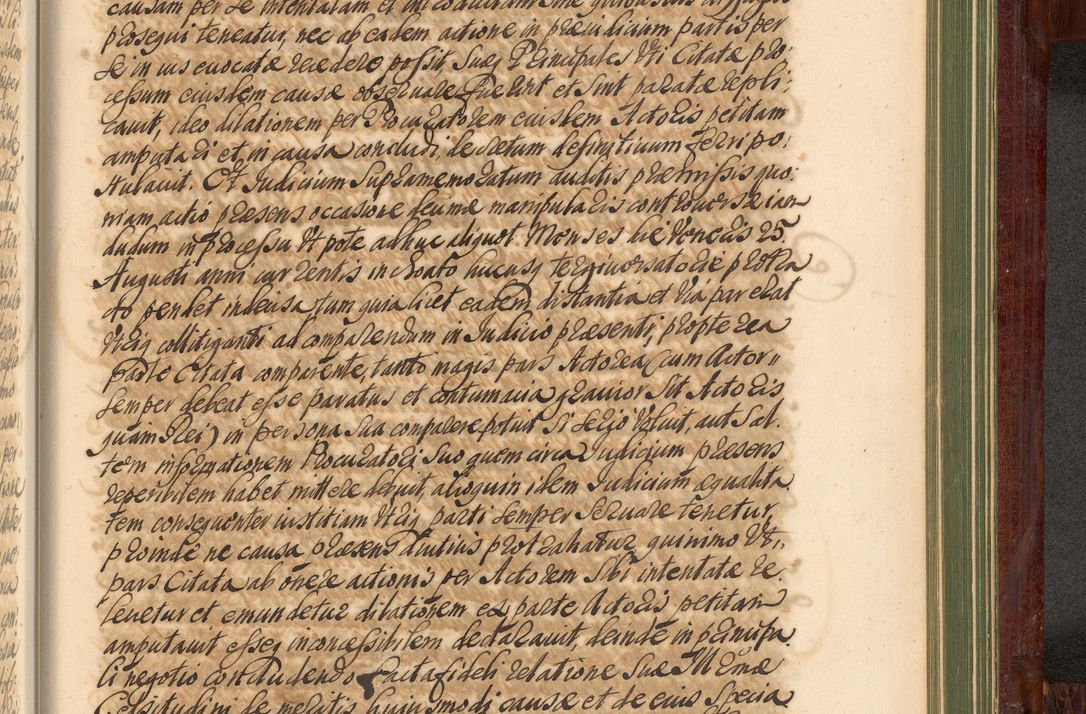 causam per se intentatam et
prosequi teneatur, nec ab eadem actione in præiudicium partis per
se in ius evocatæ recedere possit. Suæq Principales Uti Citatæ pro,
cessum eiusdem causæ observare et sint paratæ repli,
cavit, ideo dilationem per Procuratorem eiusdem Actoris petitam
amputari et, in causa concludi, decretum definitivum ferri po,
stulavit. Et Judicium Supramemoratum auditis præmissis quo,
niam actio præsens occasione decimæ manipularis controversæ iam
dudum in processu Ut pote adhuc aliquot Menses die Veneris 25.
Augusti anni currentis inchoato hucusq tergiversatorie protra
cto pendet indecisa, tum quia licet eadem distantia et Via par erat
Utriq collitiganti ad comparendum in Judicio præsenti, propterea
parte Citata comparente, tanto magis pars Actorea (cum Actor
semper debeat esse paratus et contumacia gravior sit Actoris
quam Rei) in persona sua comparere potuit si serio Voluit, aut sal,
tem informationem Procuratori suo quem circa Judicium præsens
reperibilem habet mittere debuit, alioquin idem Judicium æqualita
tem consequenter iustitiam Utriq parti semper servare tenetur,
proinde ne causa præsens diutius protrahatur quinimo Ut,
pars Citata ab onere actionis per Actorem sibi intentatæ re,
levetur et emundetur dilationem ex parte Actoris petitam
amputavit esseq inconcessibilem declaravit, deinde in principa,
li negotio concludendo facta fideli relatione suæ
Celsitudini de meritis huiusmodi causæ et de eius specia